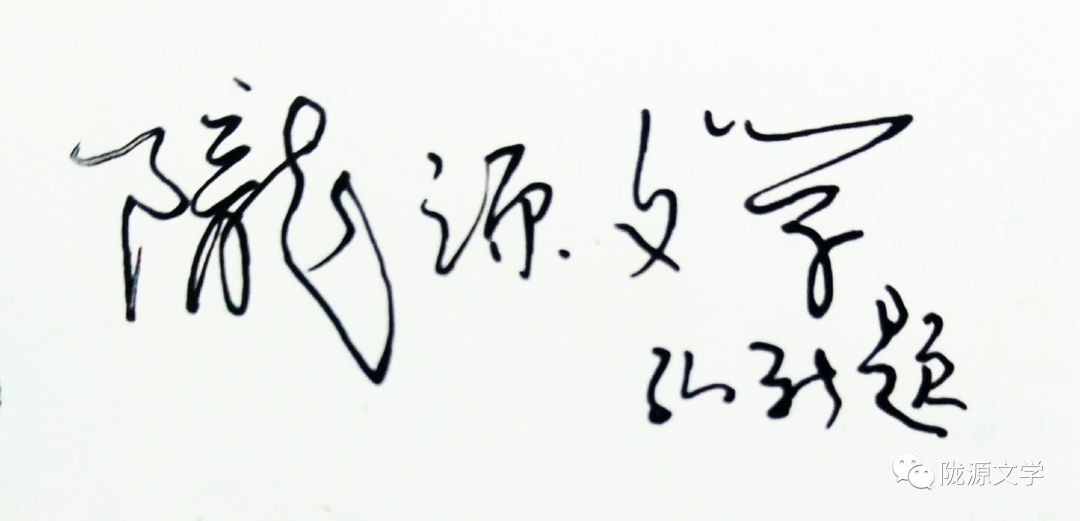 隴源文学
弘 题
陇源文学